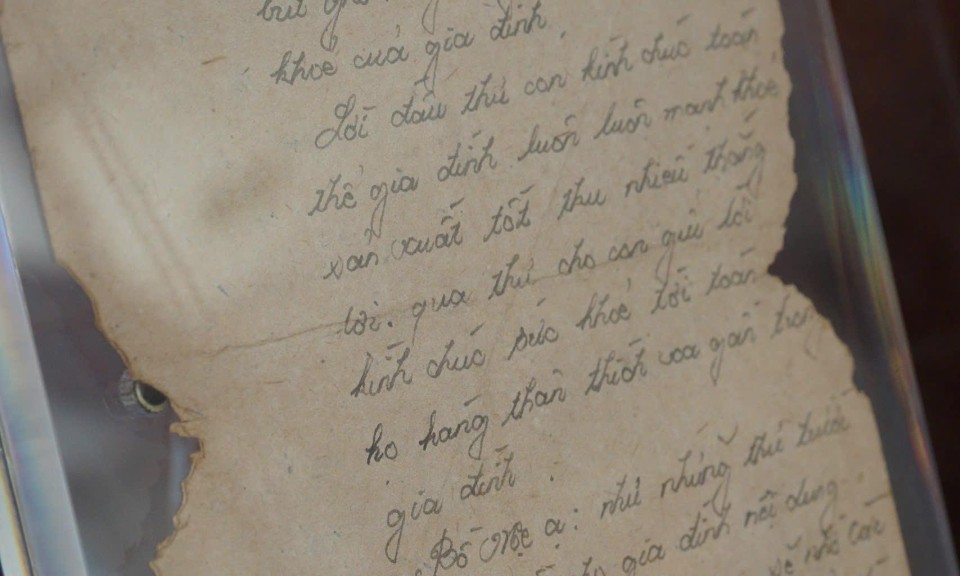 bút
khoẻ của gia đình.
Lời đầu thư con kính chúc toàn
thể gia đình luôn luôn mạnh khoẻ
sản xuất tốt thu nhiều thắng
lợi. qua thư cho con gửi lời
kính chúc sức khoẻ tới toàn
họ hàng thân thích xa gần trong
gia đình.
Bố Mẹ ạ: như những thư trước
gia đình nội dung